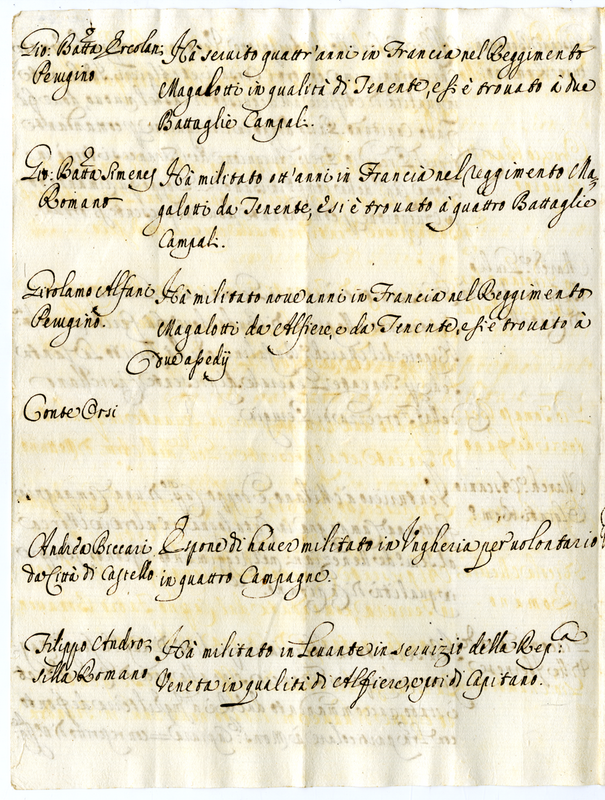 Gio: Batta Ercolan: Hà seruito quattr'anni in Francia nel Reggimento
Perugino Magalotti in qualità di Tenente, e si è trouato à due
Battaglie Campali.
Gio: Batta Simenes Hà militato ott'anni in Francia nel reggimento Ma=
Romano galotti da Tenente, E si è trouato à quattro Battaglie
Campali.
Girolamo Alfani Hà militato noue anni in Francia nel Reggimento
Perugino. Magalotti da Alfiere, e da Tenente, e si è trouato à
due assedij
Conte Orsi
Andrea Beccari Espone di hauer militato in Vngheria per uolontario
da Città di Castello in quattro Campagne.
Filippo Andro= Hà militato in Leuante in seruizio della Rep:ca
silla Romano Veneta in qualità di Alfiere, e poi di Capitano.